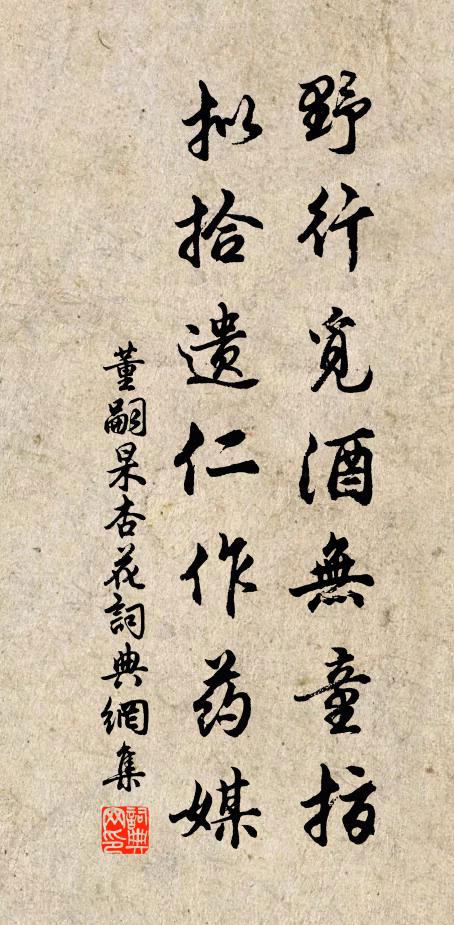 野行觅酒無童指
拟拾遗仁作药媒
董嗣杲杏花詞典網集
詞典網印